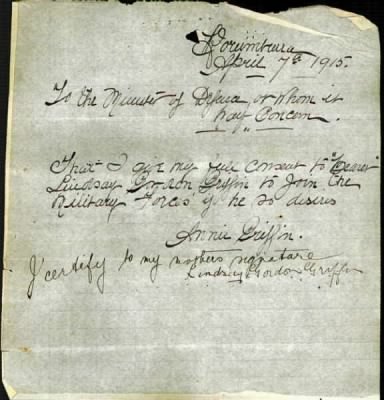 Korumburra
April 7th 1915.
To the Minister of Defence, or whom it
may Concern.
That I give my full consent to "Bearer"
Lindsay Gordon Griffin to Join the
Military Forces if he so desires
Annie Griffin.
I certify to my mothers signature
Lindsay Gordon Griffin